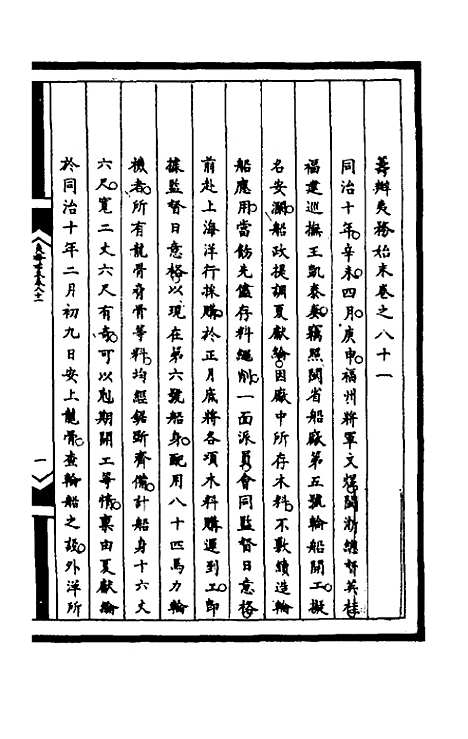 籌辦夷務始末卷之八十一
同治十年辛未四月庚申福州將軍文煜閩浙總督英桂
福建巡撫王凱泰奏竊照閩省船廠第五號輪船開工擬
名安瀾船政提調夏獻綸因廠中所存木料不敷續造輪
船應用當飭先儘存料繩削一面派員會同監督日意格
前赴上海洋行採購於正月底將各項木料購運到工即
據監督日意格以現在第六號船身配用八十四馬力輪
機者所有龍骨脅骨等料均經鋸斲齊備計船身十六丈
六尺寬二丈六尺有奇可以剋期開工等情稟由夏獻綸
於同治十年二月初九日安上龍骨查輪船之設外洋所
夷務始末卷八十一
一